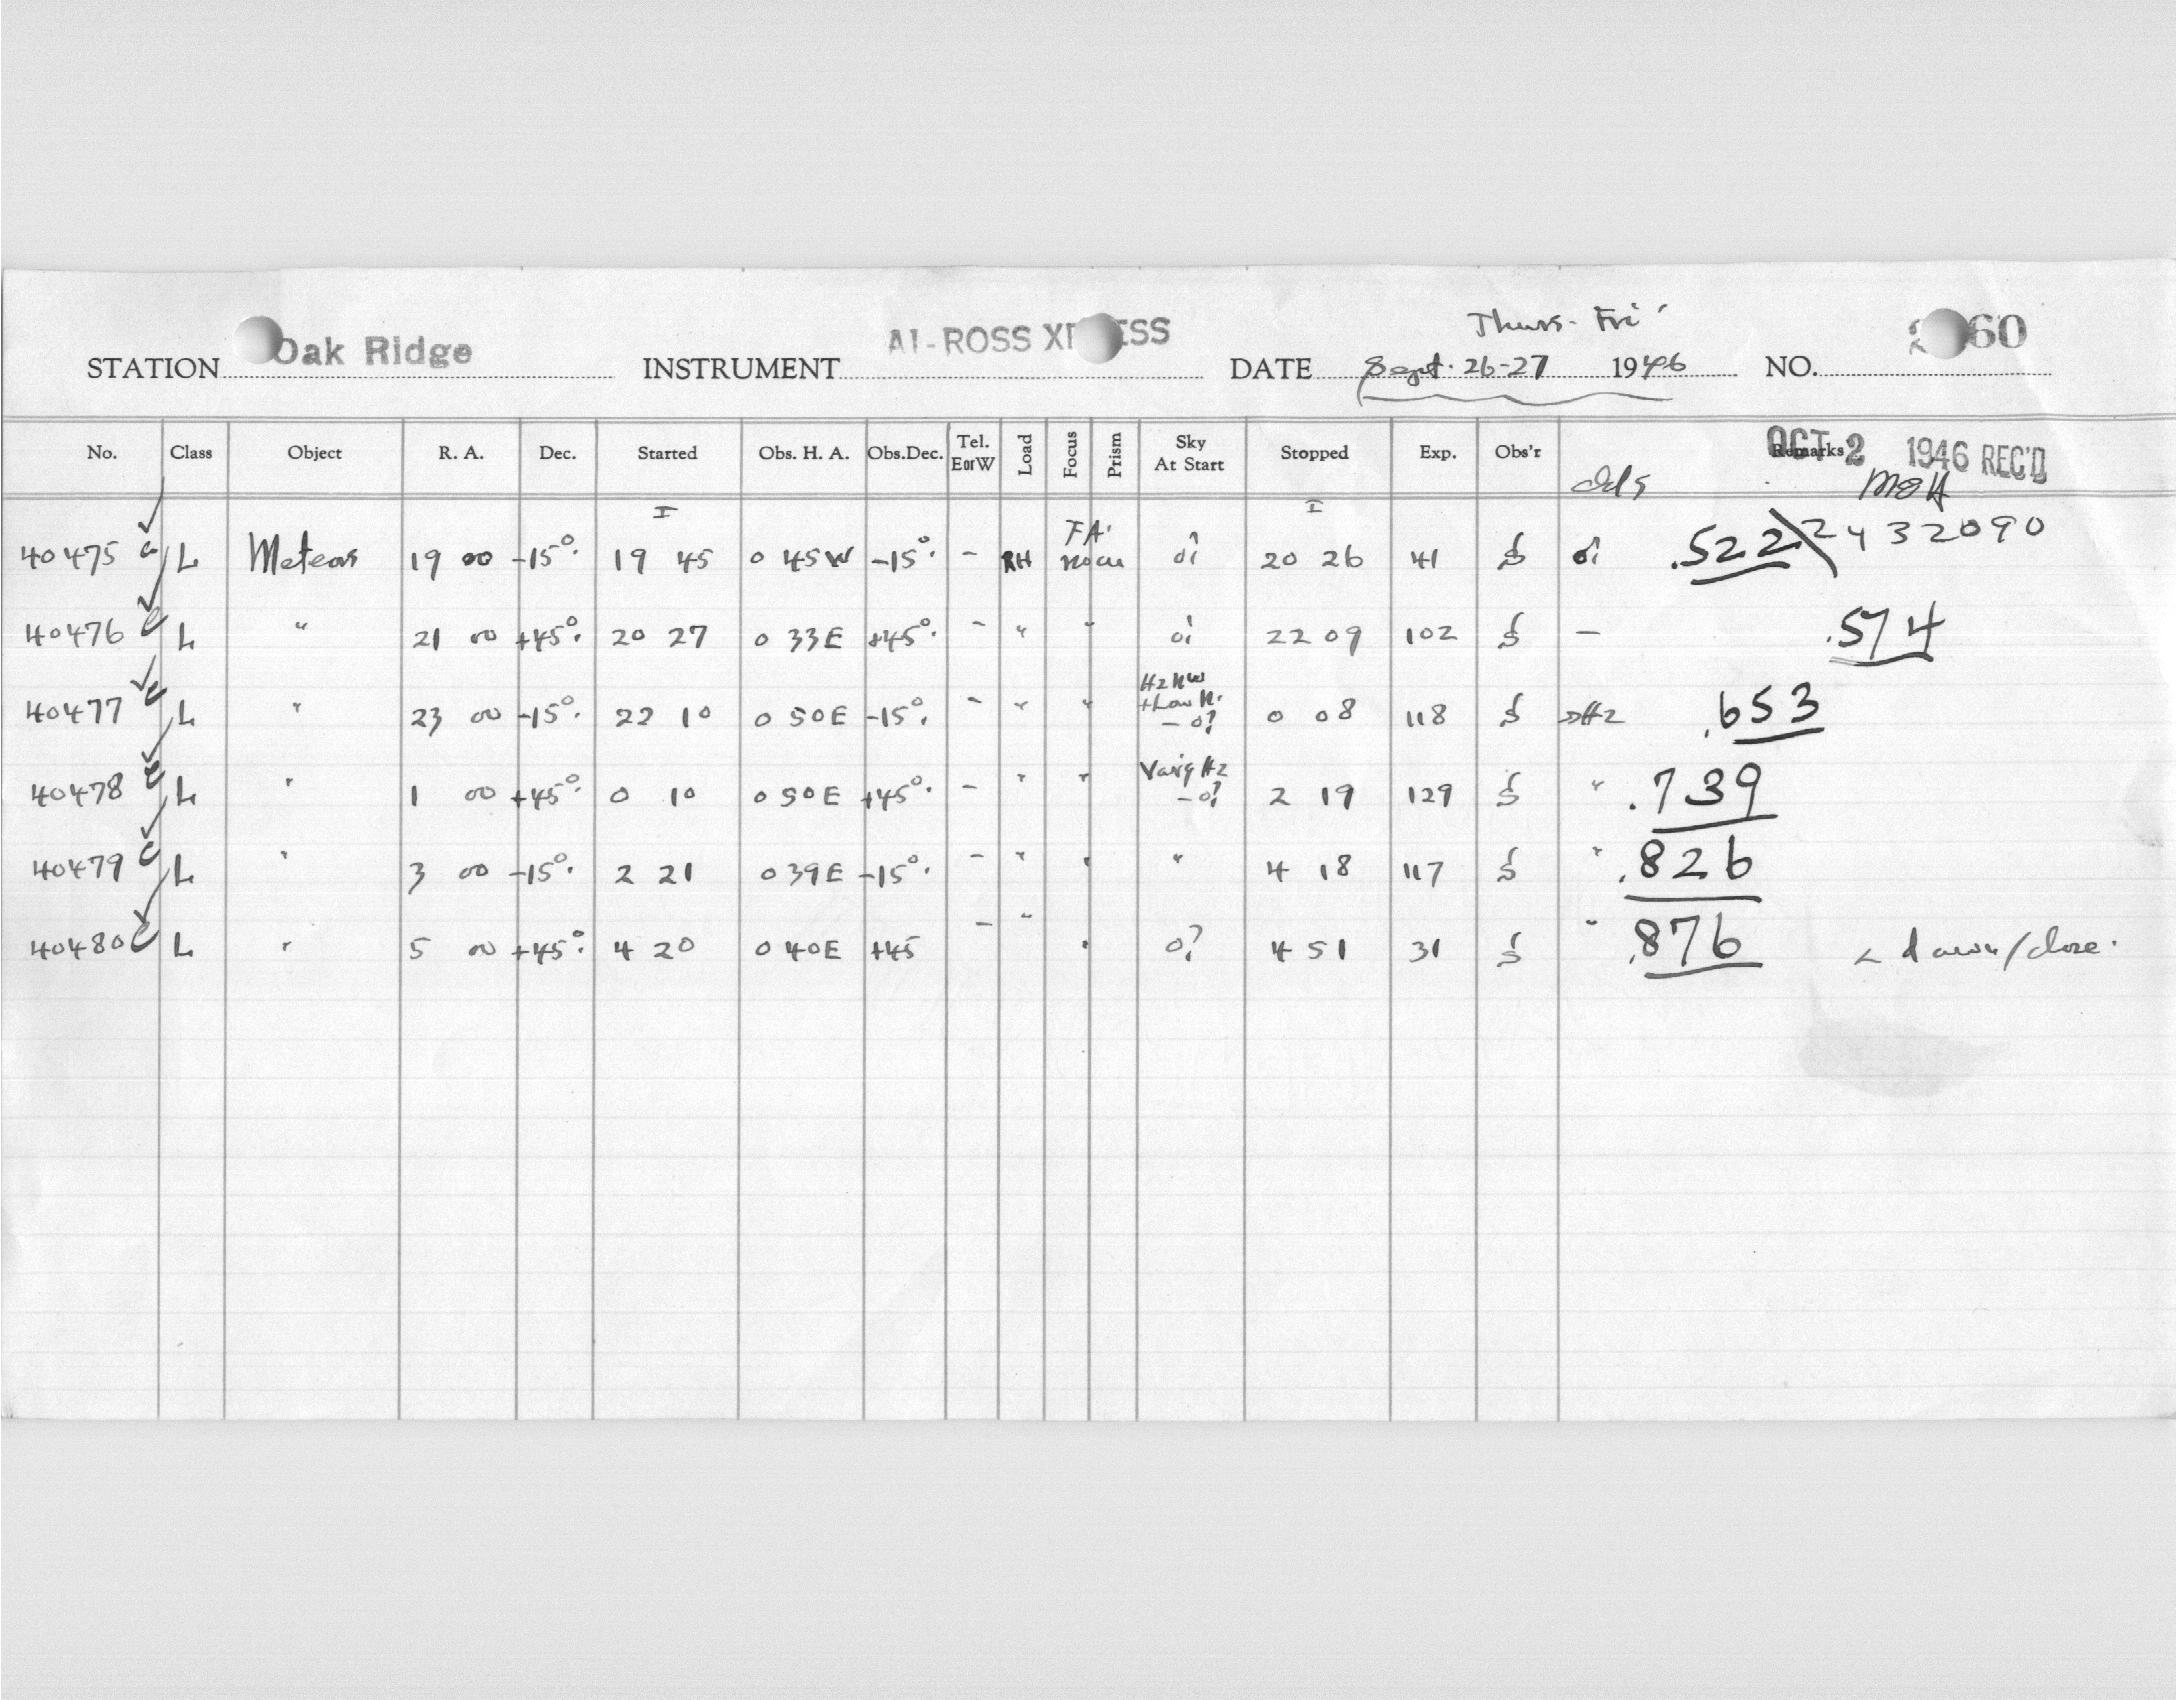 Thurs. Fri
STATION Oak Ridge INSTRUMENT AI-ROSS XPRESS DATE Sept. 26-27 1946 NO. 60
No. Class Object R. A. Dec. Started Obs. H. A. Obs.Dec. Tel. E or W Load Focus Prism Sky At Start Stopped Exp. Obs'r Remarks
OCT 2 1946 REC'D
I I
40475 L Meteors 19 00 -15°. 19 45 0 45W -15°. - RH FA. 20 26 41 .522 2432090
40476 L " 21 00 +45°. 20 27 0 33E +45°. - " " 22 09 102 - .574
40477 L " 23 00 -15°. 22 10 0 50E -15°. - " " Hz NW + Low N. - 0? 0 08 118 Hz .653
40478 L " 1 00 +45°. 0 10 0 50E +45°. - " " Varig Hz - 0? 2 19 129 " .739
40479 L " 3 00 -15°. 2 21 0 39E -15°. - " " " 4 18 117 " .826
40480 L " 5 00 +45°. 4 20 0 40E +45 - " " 0? 4 51 31 " .876 < dawn/close.